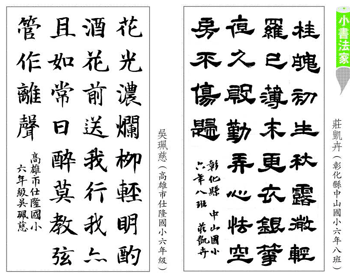 小書法家
莊凱卉（彰化縣中山國小六年八班）
桂魄初生秋露微輕
羅已薄未更衣銀箏
夜久殷勤弄心怯空
房不傷歸
彰化縣中山國小
六年八班 莊凱卉
吳珮慈（高雄市仕隆國小六年級）
花光濃爛柳輕明酌
酒花前送我行我亦
且如常日醉莫教弦
管作離聲
高雄市仕隆國小
六年級吳珮慈